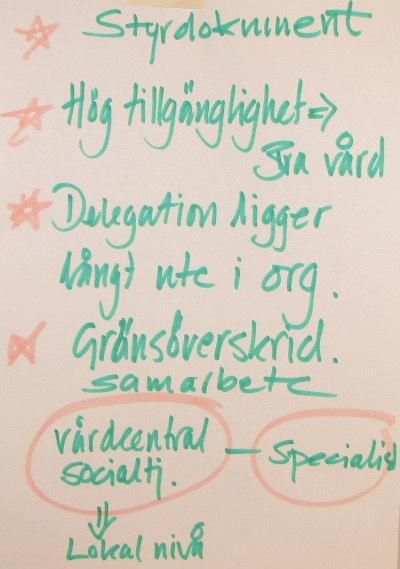 Styrdokument
Hög tillgänglighet ⇒
Bra vård
Delegation ligger
långt ute i org.
Gränsöverskrid.
samarbete
vårdcentral — Specialist
socialtj.
⇓
Lokal nivå